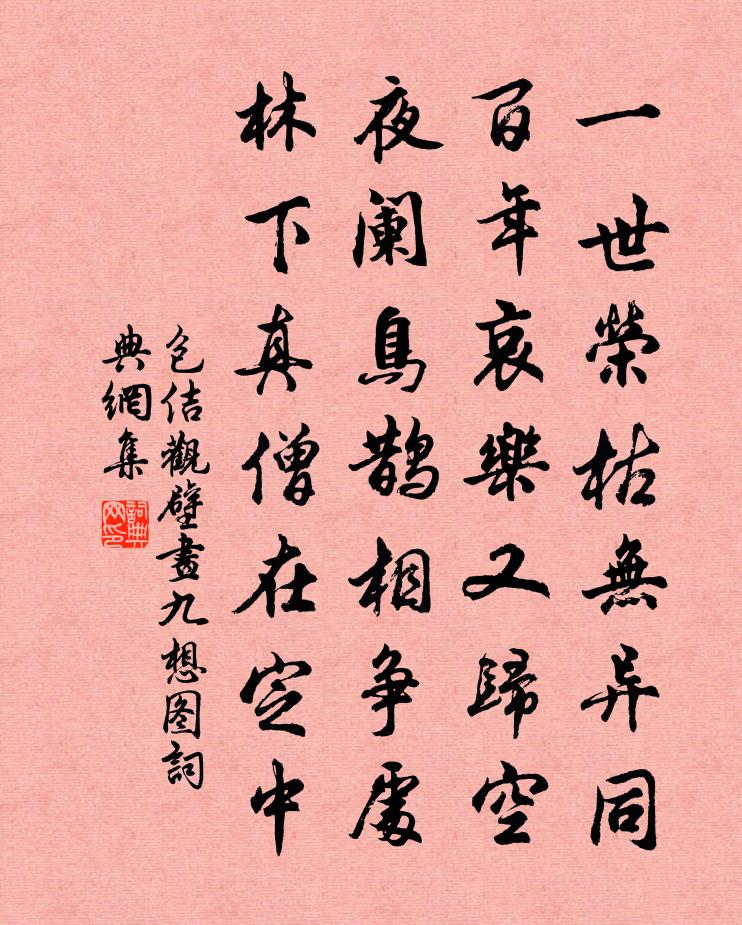 一世榮枯無异同
百年哀樂又歸空
夜阑鳥鹊相争處
林下真僧在定中
包佶觀壁畫九想图詞
典網集
詞典
网印